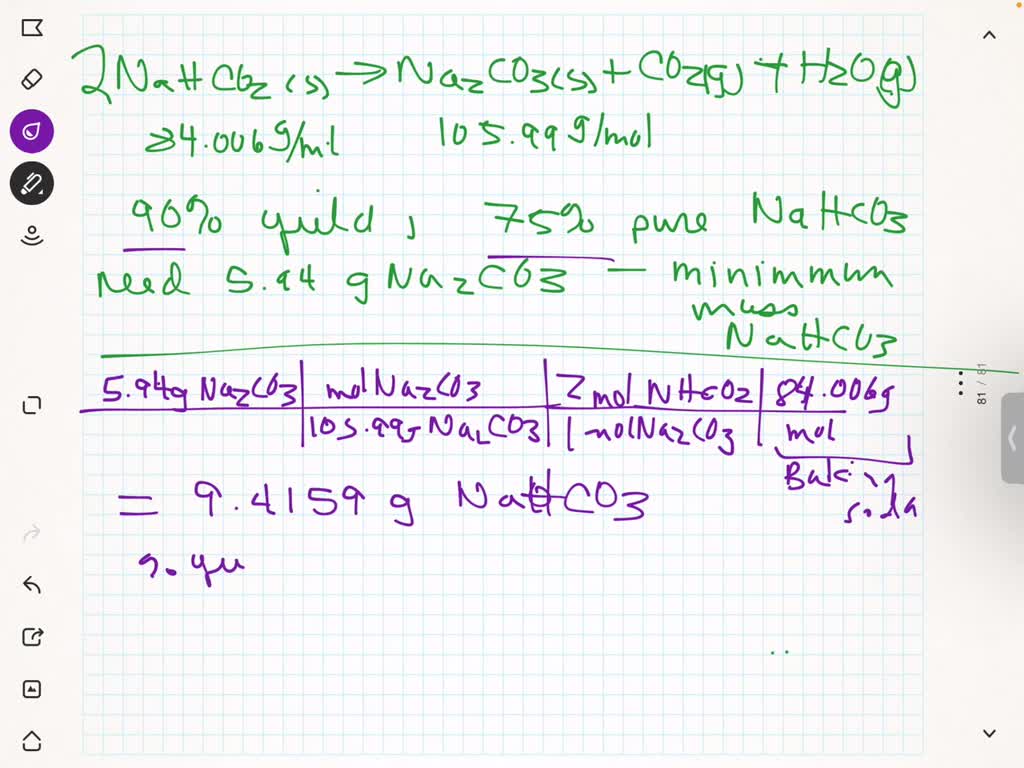 2NaHCO2(s) → Na2CO3(s) + CO2(g) + H2O(g)
84.006g/mol 105.99g/mol
90% yield, 75% pure NaHCO3
need 5.94 g Na2CO3 — minimmum
mass
NaHCO3
5.94g Na2CO3 | mol Na2CO3 | 2 mol NHCO2 | 84.006g
105.99g Na2CO3 | 1 mol Na2CO3 | mol
Baking
soda
= 9.4159 g NaHCO3
9.
81 / 81